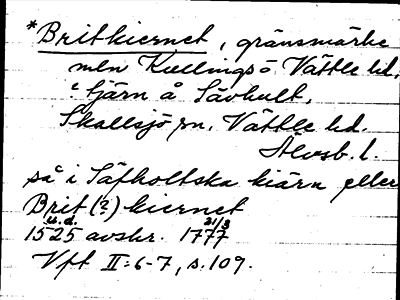 *Britkiernet, gränsmärke
mln Kullingsö Vättle hd,
? tjärn å Sävhult,
Skallsjö sn, Vättle hd.
Älvsb. l.
så i Säfholtska kiärn eller
Brit(?)kiernet
u.d.
1525 avskr. 1777 21/3
Vft II:6-7, s. 109.